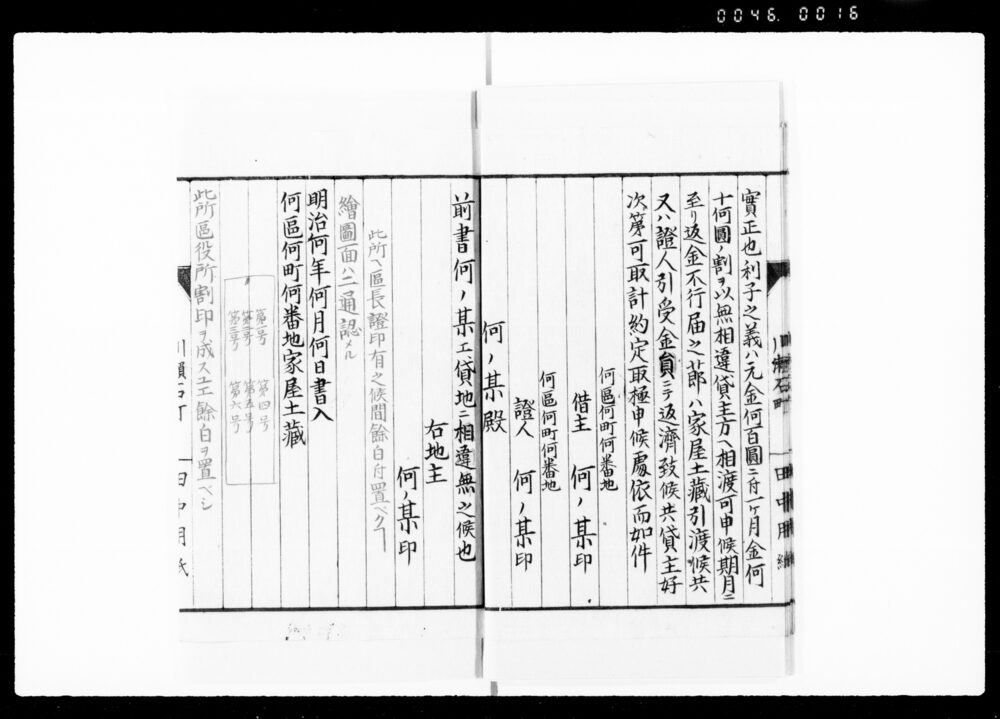 0046. 0016
實正也利子之義ハ元金何百圓ニ付一ケ月金何
十何圓ノ割ヲ以無相違貸主方ヘ相渡可申候期月ニ
至リ返金不行届之莭ハ家屋土藏引渡候共
又ハ證人引受金員ニテ返濟致候共貸主好
次第可取計約定取極申候處依而如件
何區何町何番地
借主 何ノ某印
何區何町何番地
證人 何ノ某印
何ノ某殿
前書何ノ某エ貸地ニ相違無之候也
右地主
何ノ某印
此所ヘ區長證印有之候間餘白付置ベク
繪圖面ハ二通認メル
明治何年何月何日書入
何區何町何番地家屋土藏
第一号 第四号
第二号 第五号
第三号 第六号
此所區役所割印ヲ成スエ餘白ヲ置ベシ
田中用